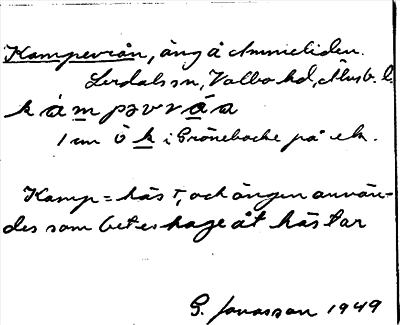 Kampevrån, äng å Ammeliden.
Lerdals sn, Valbo hd, Älvsb. l.
kámpəvråa
1 km Ö k i Grönebacke på ek.
Kamp = häst, och ängen använ-
des som beteshage åt hästar
G. Jonasson 1949